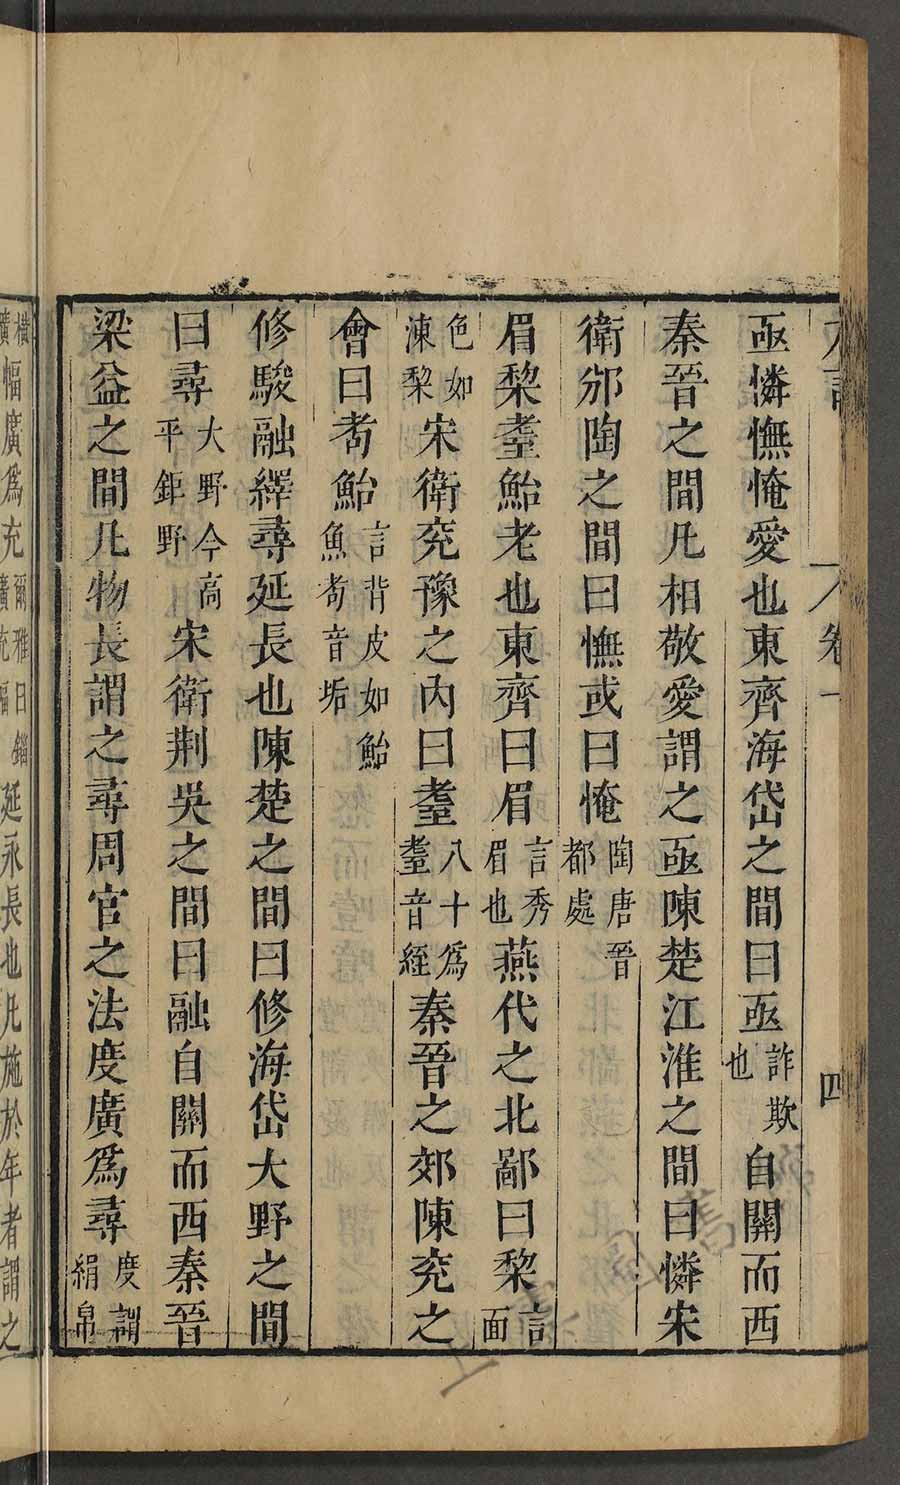 方言 卷一 四
亟憐憮㤿愛也東齊海岱之間曰亟詐欺也自關而西
秦晉之間凡相敬愛謂之亟陳楚江淮之間曰憐宋
衛邠陶之間曰憮或曰㤿陶唐晉都處
眉棃耋鮐老也東齊曰眉言秀眉也燕代之北鄙曰棃言面
色如凍棃宋衛兖豫之內曰耋八十為耋音絰秦晉之郊陳兖之
會曰耇鮐言背皮如鮐魚耇音垢
修駿融繹尋延長也陳楚之間曰修海岱大野之間
曰尋大野今高平鉅野宋衛荆吳之間曰融自關而西秦晉
梁益之間凡物長謂之尋周官之法度廣爲尋度謂絹帛
橫廣幅廣爲充爾雅曰緇廣充幅延永長也凡施於年者謂之